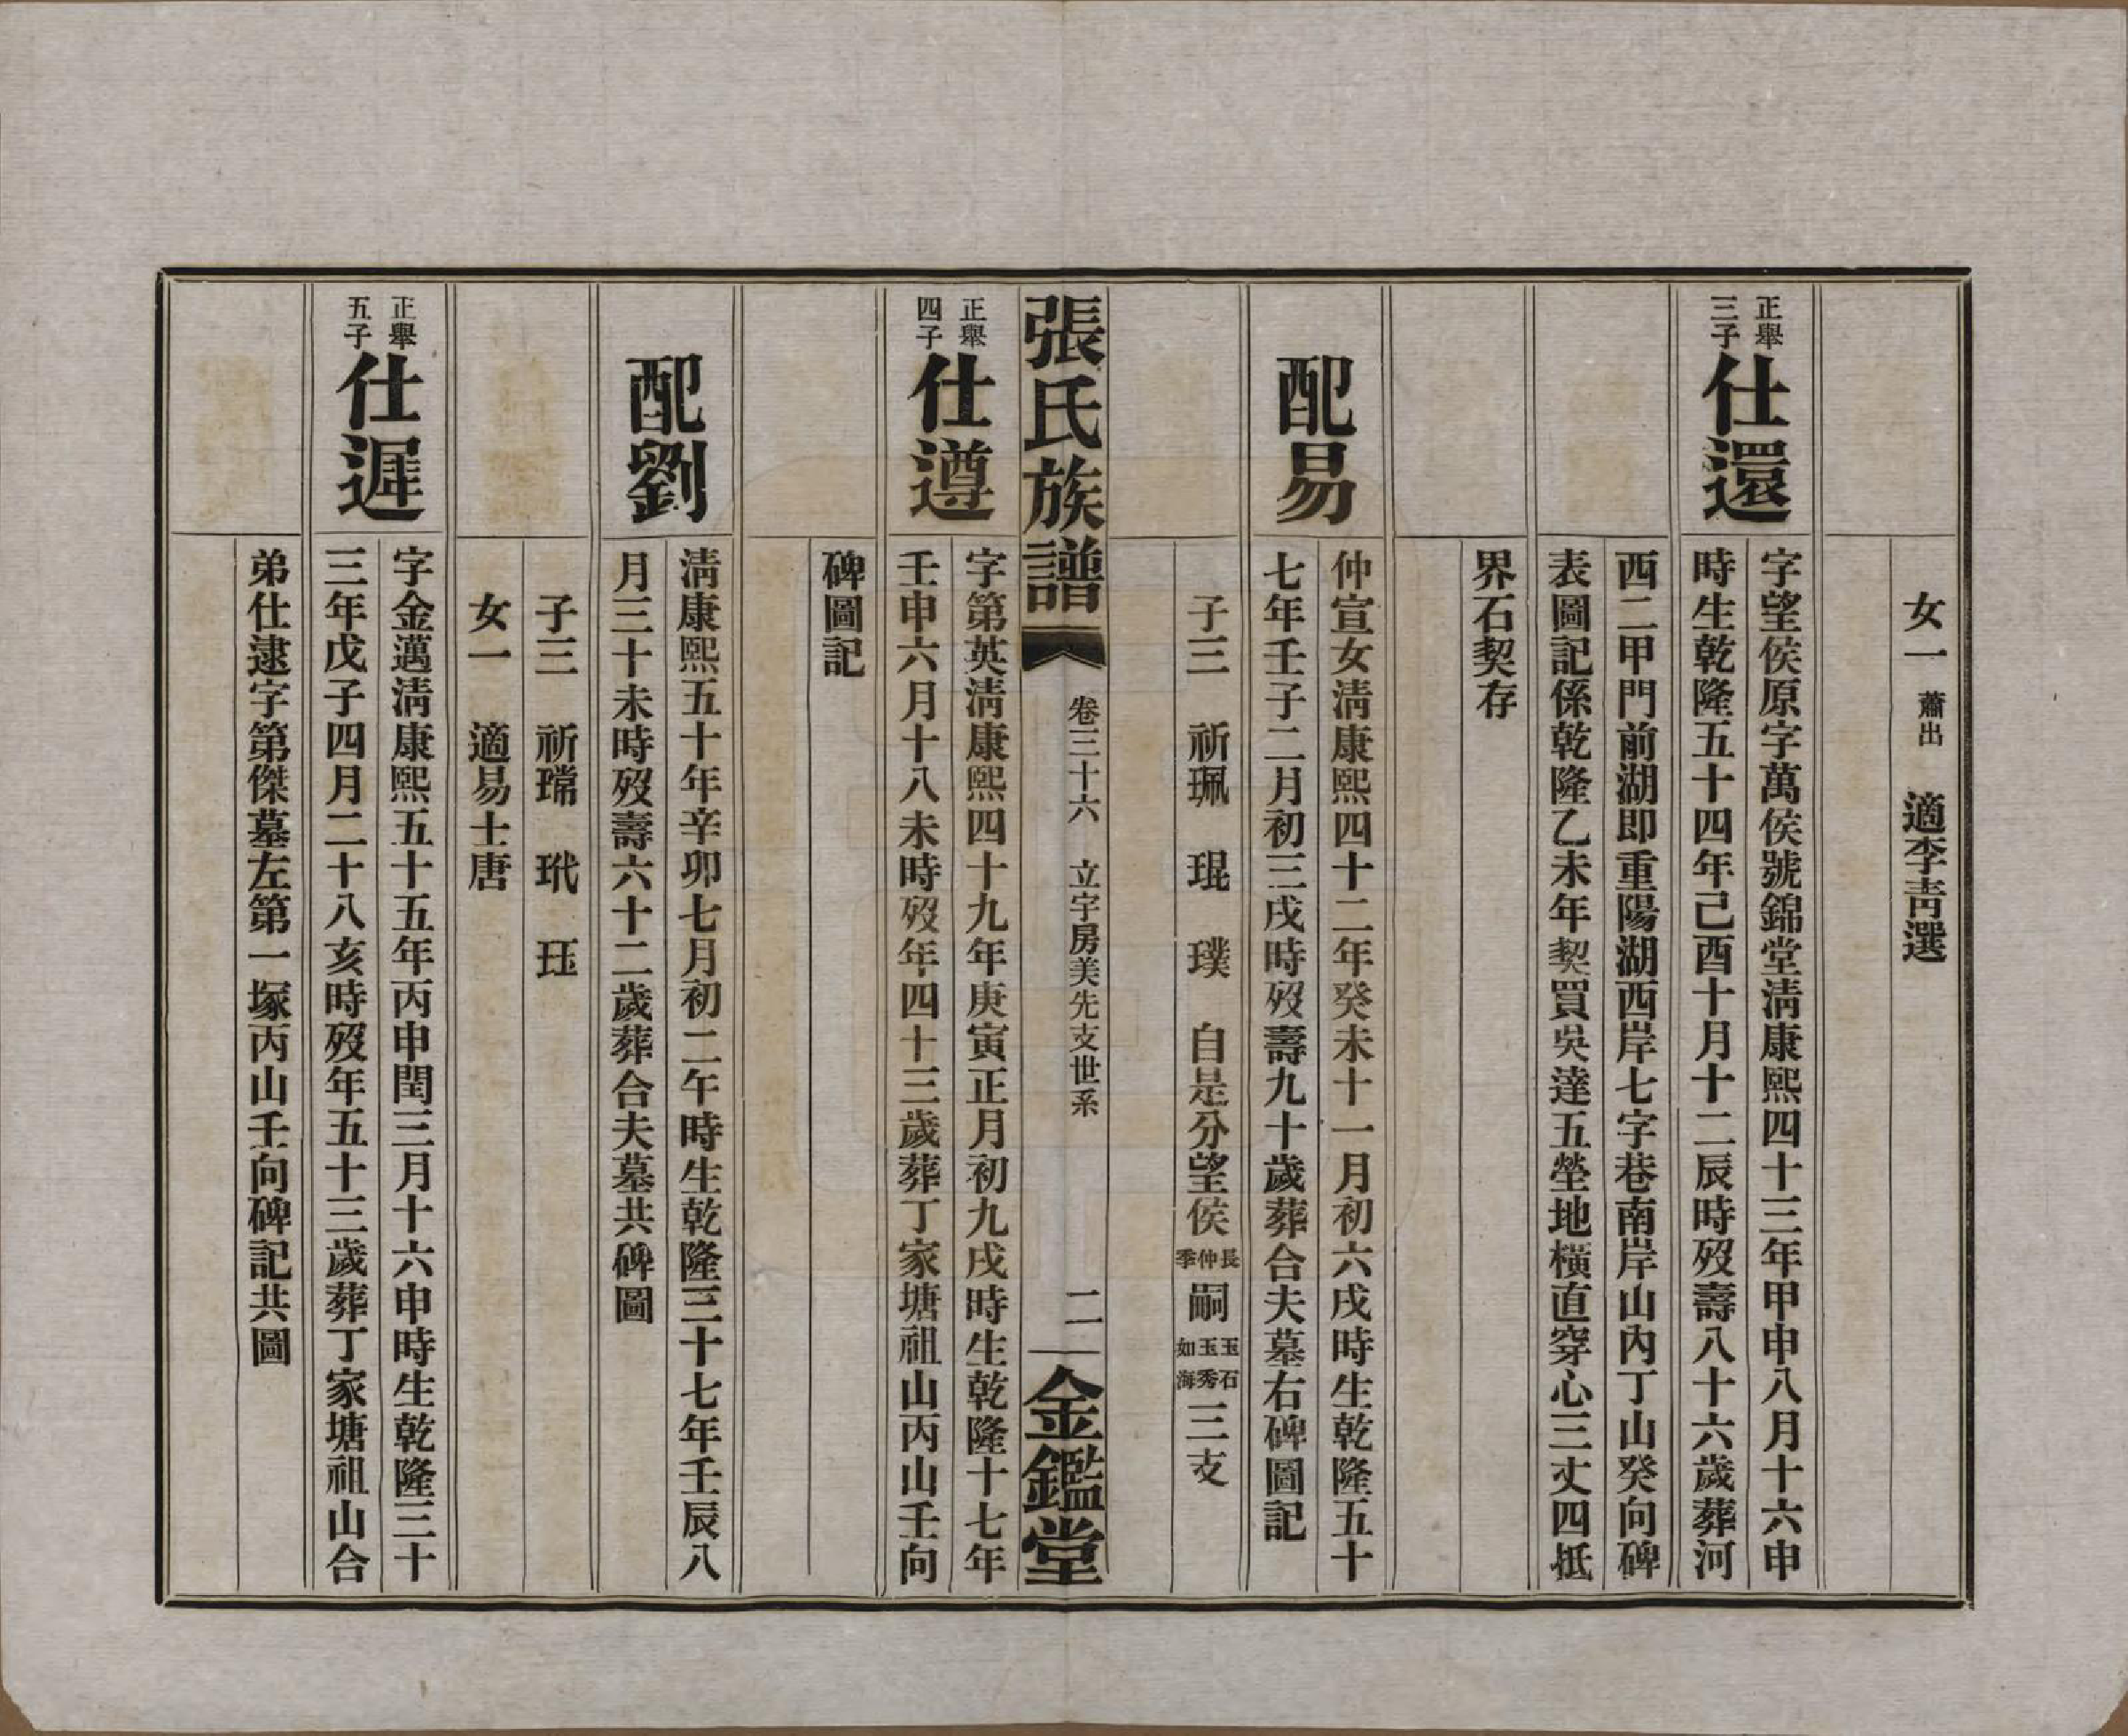 女一 蕭出 適李青選
正舉
三子
仕還
字望侯原字萬侯號錦堂清康熙四十三年甲申八月十六申
時生乾隆五十四年己酉十月十二辰時歿壽八十六歲葬河
西二甲門前湖即重陽湖西岸七字巷南岸山內丁山癸向碑
表圖記係乾隆乙未年契買吳達五塋地橫直穿心三丈四抵
界石契存
配易
仲宣女清康熙四十二年癸未十一月初六戌時生乾隆五十
七年壬子二月初三戌時歿壽九十歲葬合夫墓右碑圖記
子三 祈珮 琨 璞 自是分望侯長仲季嗣玉石玉秀如海三支
張氏族譜 卷三十六 立字房美先支世系 二 金鑑堂
正舉
四子
仕遵
字第英清康熙四十九年庚寅正月初九戌時生乾隆十七年
壬申六月十八未時歿年四十三歲葬丁家塘祖山丙山壬向
碑圖記
配劉
清康熙五十年辛卯七月初二午時生乾隆三十七年壬辰八
月三十未時歿壽六十二歲葬合夫墓共碑圖
子三 祈瑺 玳 珏
女一 適易士唐
正舉
五子
仕遲
字金邁清康熙五十五年丙申閏三月十六申時生乾隆三十
三年戊子四月二十八亥時歿年五十三歲葬丁家塘祖山合
弟仕逮字第傑墓左第一塚丙山壬向碑記共圖